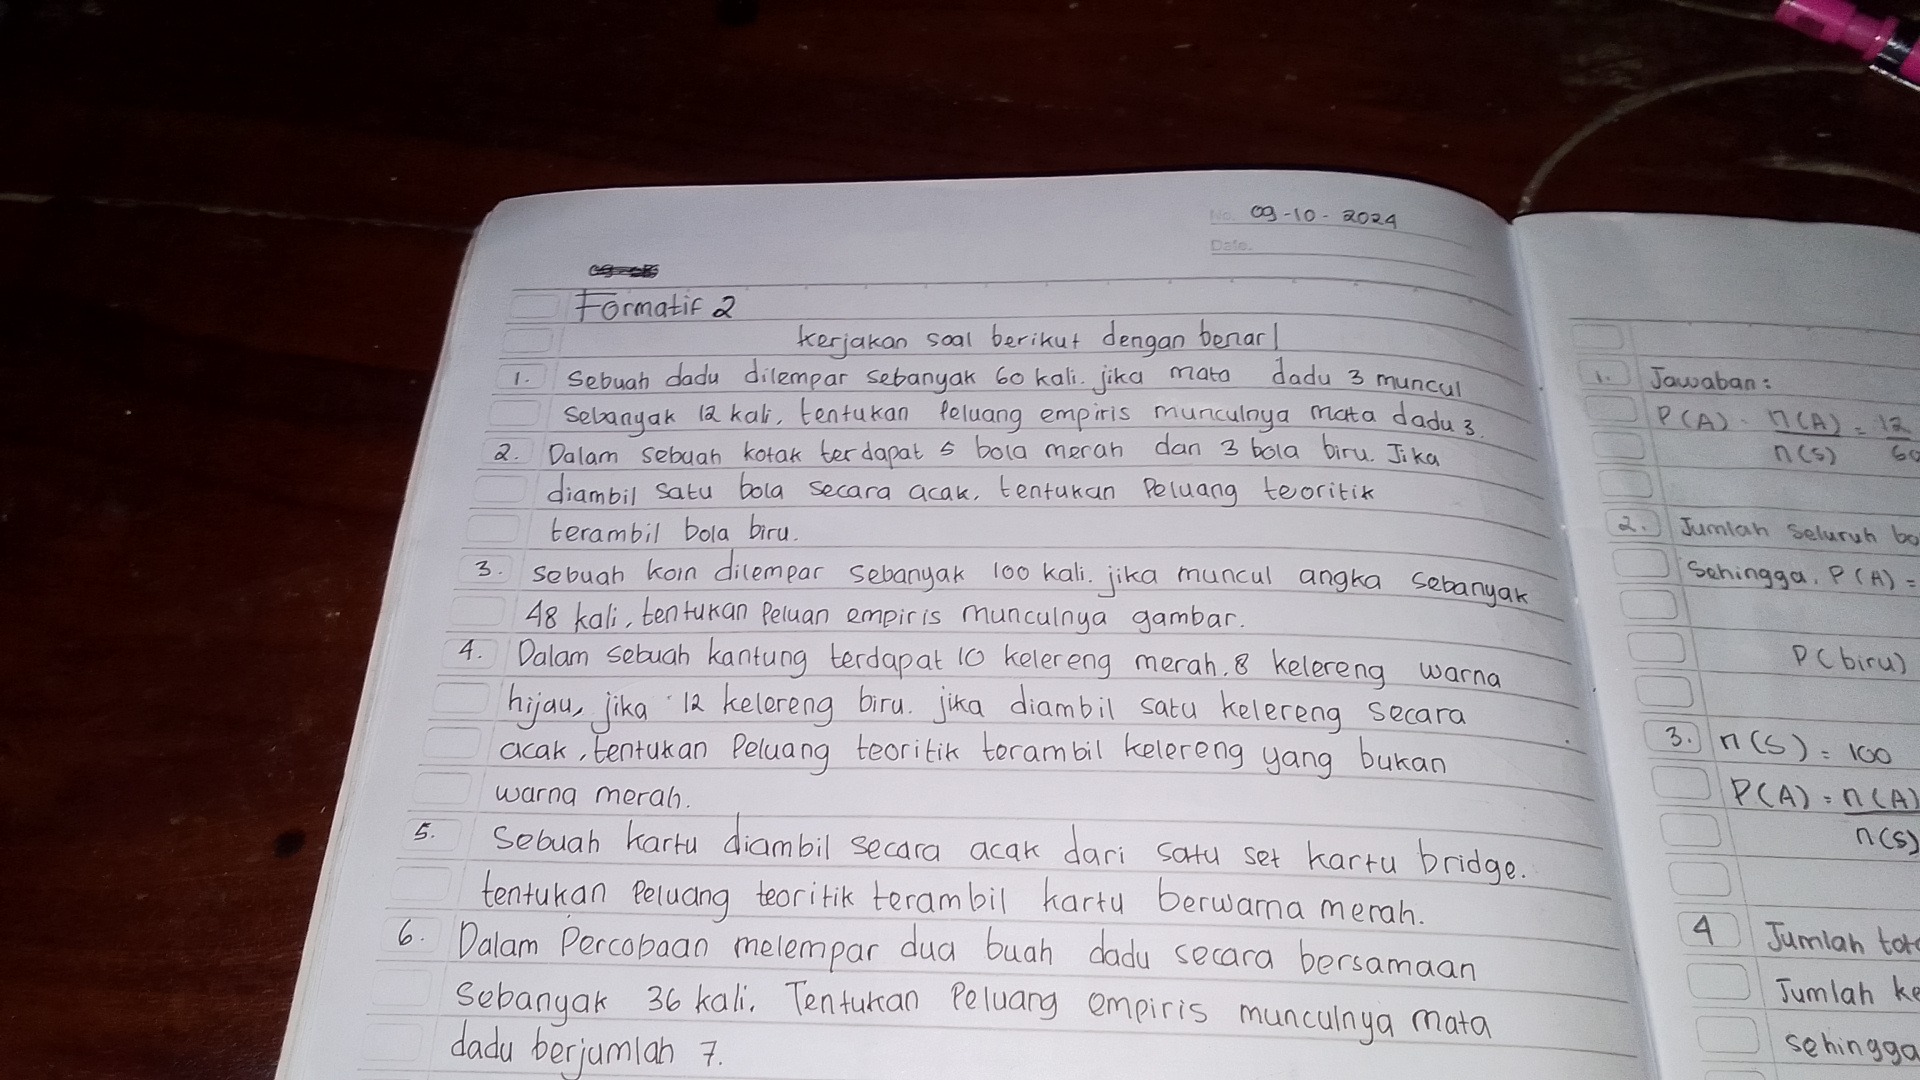 No. 09-10-2024
Date.
Formatif 2
kerjakan soal berikut dengan benar!
1. Sebuah dadu dilempar sebanyak 60 kali. jika mata dadu 3 muncul
sebanyak 12 kali, tentukan Peluang empiris munculnya mata dadu 3.
2. Dalam sebuah kotak terdapat 5 bola merah dan 3 bola biru. Jika
diambil satu bola secara acak, tentukan Peluang teoritik
terambil bola biru.
3. Sebuah koin dilempar sebanyak 100 kali. jika muncul angka sebanyak
48 kali, tentukan Peluan empiris munculnya gambar.
4. Dalam sebuah kantung terdapat 10 kelereng merah, 8 kelereng warna
hijau, jika 12 kelereng biru. jika diambil satu kelereng secara
acak, tentukan Peluang teoritik terambil kelereng yang bukan
warna merah.
5. Sebuah kartu diambil secara acak dari satu set kartu bridge.
tentukan Peluang teoritik terambil kartu berwarna merah.
6. Dalam Percobaan melempar dua buah dadu secara bersamaan
Sebanyak 36 kali. Tentukan Peluang empiris munculnya mata
dadu berjumlah 7.
1. Jawaban:
P(A) = n(A) = 12
n(s)
2. Jumlah Seluruh
Sehingga, P(A) =
P(biru)
3. n(S) = 100
P(A) = n(A)
n(s)
4 Jumlah
Jumlah
sehingga